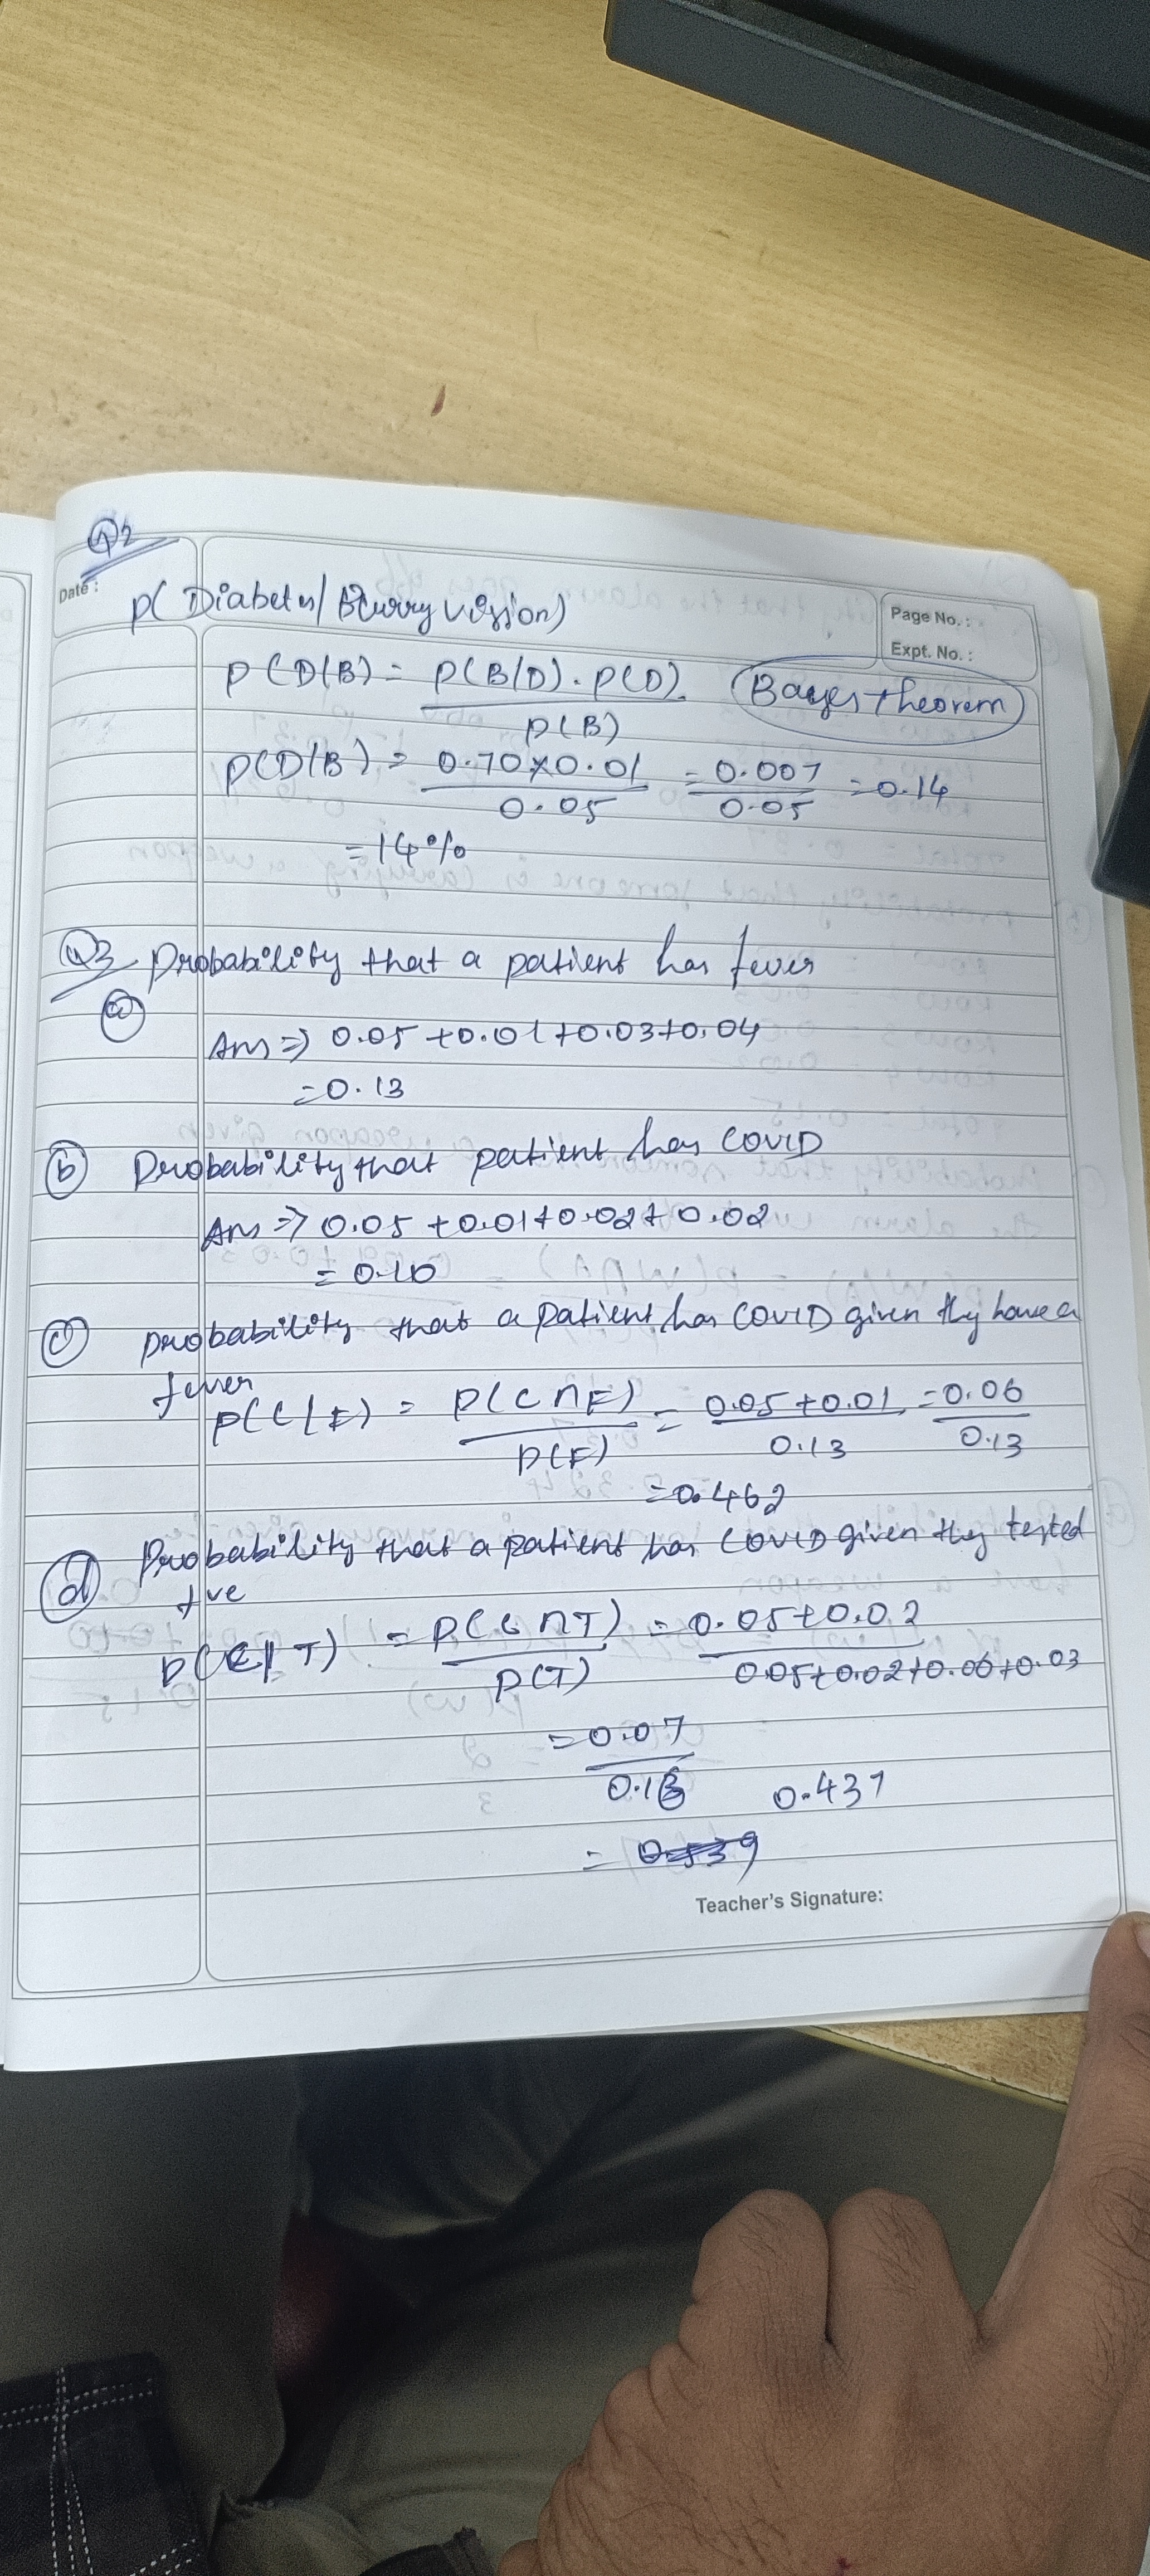 Q2
Date :
P( Diabetes/ Blurry vision)
Page No. :
Expt. No. :
P(D/B) = P(B/D) . P(D) Bayes theorem
P(B)
P(D/B) = 0.70×0.01 = 0.007 = 0.14
0.05 0.05
= 14%
Q3 Probability that a patient has fever
a
Ans => 0.05 +0.01+0.03+0.04
= 0.13
b Probability that patient has COVID
Ans => 0.05 +0.01+0.02+ 0.02
= 0.10
c Probability that a patient has COVID given they have a
fever
P(C/F) = P(C ∩ F) = 0.05 +0.01 = 0.06
P(F) 0.13 0.13
= 0.462
d Probability that a patient has COVID given they tested
+ve
P(C/T) = P(C ∩ T) = 0.05+0.02
P(T) 0.05+0.02+0.06+0.03
= 0.07
0.16 0.437
=
Teacher's Signature: